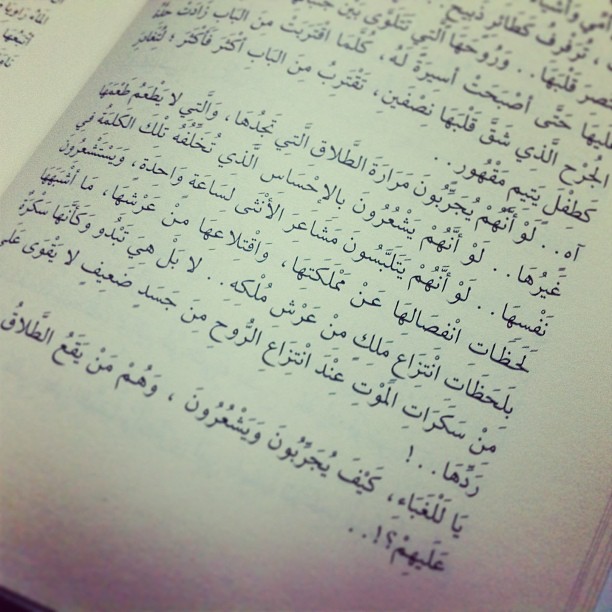 تُرَفْرِفُ كَطَائِرٍ ذَبِيحٍ..
قَلْبَهَا.. وَرُوحَهَا الَّتِي تَتَلَوَّى بَيْنَ
حَتَّى أَصْبَحَتْ أَسِيرَةً لَهُ، كُلَّمَا اقْتَرَبَتْ مِنَ البَابِ زَادَتْ
الجُرْحِ الَّذِي شَقَّ قَلْبَهَا نِصْفَينِ، تَقْتَرِبُ مِنَ البَابِ أَكْثَرَ فَأَكْثَرَ؛
كَطِفْلٍ يَتِيمٍ مَقْهُورٍ..
آه.. لَوْ أَنَّهُمْ يُجَرِّبُونَ مَرَارَةَ الطَّلَاقِ الَّتِي تَجِدُهَا، وَالَّتِي لَا يَطْعَمُ طَعْمَهَا
غَيْرُهَا.. لَوْ أَنَّهُمْ يَشْعُرُونَ بِالإِحْسَاسِ الَّذِي تُخَلِّفُهُ تِلْكَ الكَلِمَةُ فِي
نَفْسِهَا.. لَوْ أَنَّهُمْ يَتَلَبَّسُونَ مَشَاعِرَ الأُنْثَى لِسَاعَةٍ وَاحِدَة، وَيَسْتَشْعِرُونَ
لَحَظَاتِ انْفِصَالِهَا عَنْ مَمْلَكَتِهَا، وَاقْتِلَاعِهَا مِنْ عَرْشِهَا، مَا أَشْبَهَهَا
بِلَحَظَاتِ انْتِزَاعِ مَلِكٍ مِنْ عَرْشِ مُلْكِهِ.. لَا بَلْ هِيَ تَبْدُو وَكَأَنَّهَا سَكْرَةٌ
مِنْ سَكَرَاتِ المَوْتِ عِنْدَ انْتِزَاعِ الرُّوحِ مِنْ جَسَدٍ ضَعِيفٍ لَا يَقْوَى عَلَى
رَدِّهَا..!
يَا لَلْغَبَاءِ، كَيْفَ يُجَرِّبُونَ وَيَشْعُرُونَ، وَهُمْ مَنْ يَقَعُ الطَّلَاقُ
عَلَيهِمْ؟!..